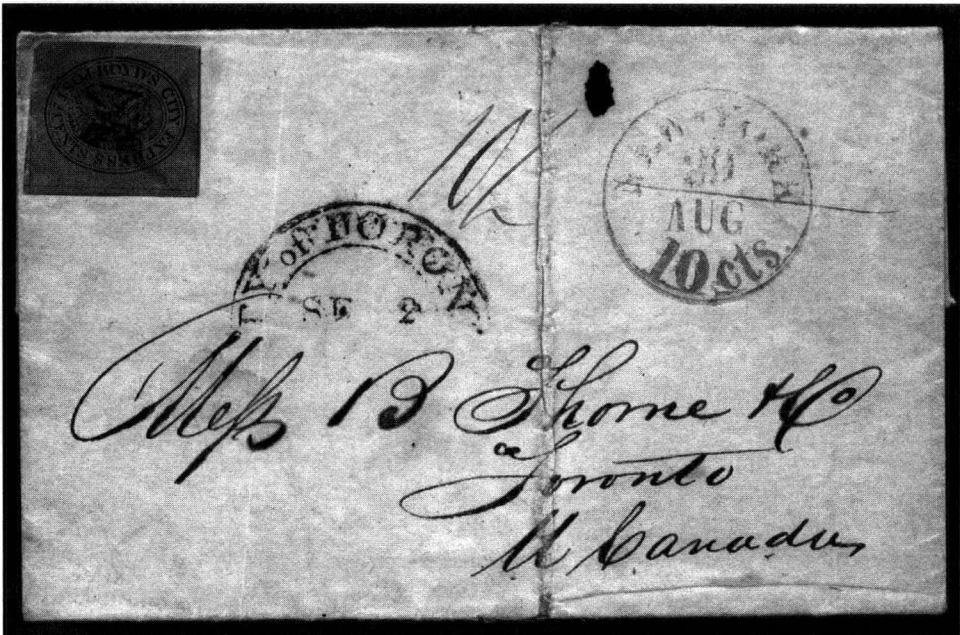 BOYD'S CITY EXPRESS POST
10
NEW-YORK
30
AUG
10 cts.
TY of TORON
SE 2
Mess B Thorne & Co
Toronto
U Canada